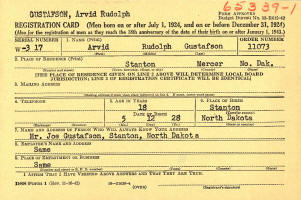 65339-1
GUSTAFSON, Arvid Rudolph
REGISTRATION CARD (Men born on or after July 1, 1924, and on or before December 31, 1928)
(Also for the registration of men as they reach the 18th anniversary of the date of their birth on or after January 1, 1943.)
SERIAL NUMBER 1. NAME (Print) ORDER NUMBER
W-317 Arvid Rudolph Gustafson 11073
2. PLACE OF RESIDENCE (Print)
Stanton Mercer No. Dak.
[THE PLACE OF RESIDENCE GIVEN ON LINE 2 ABOVE WILL DETERMINE LOCAL BOARD
JURISDICTION; LINE 2 OF REGISTRATION CERTIFICATE WILL BE IDENTICAL]
3. MAILING ADDRESS
4. TELEPHONE 5. AGE IN YEARS 6. PLACE OF BIRTH
18 Stanton
DATE OF BIRTH
5 12 28 North Dakota
7. NAME AND ADDRESS OF PERSON WHO WILL ALWAYS KNOW YOUR ADDRESS
Mr. Joe Gustafson, Stanton, North Dakota
8. EMPLOYER'S NAME AND ADDRESS
Same
9. PLACE OF EMPLOYMENT OR BUSINESS
Same
I AFFIRM THAT I HAVE VERIFIED ABOVE ANSWERS AND THAT THEY ARE TRUE.
DSS Form 1 (OVER)